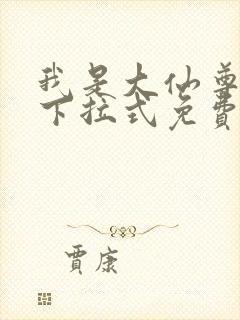 我是大仙尊
下拉式免費
賈康